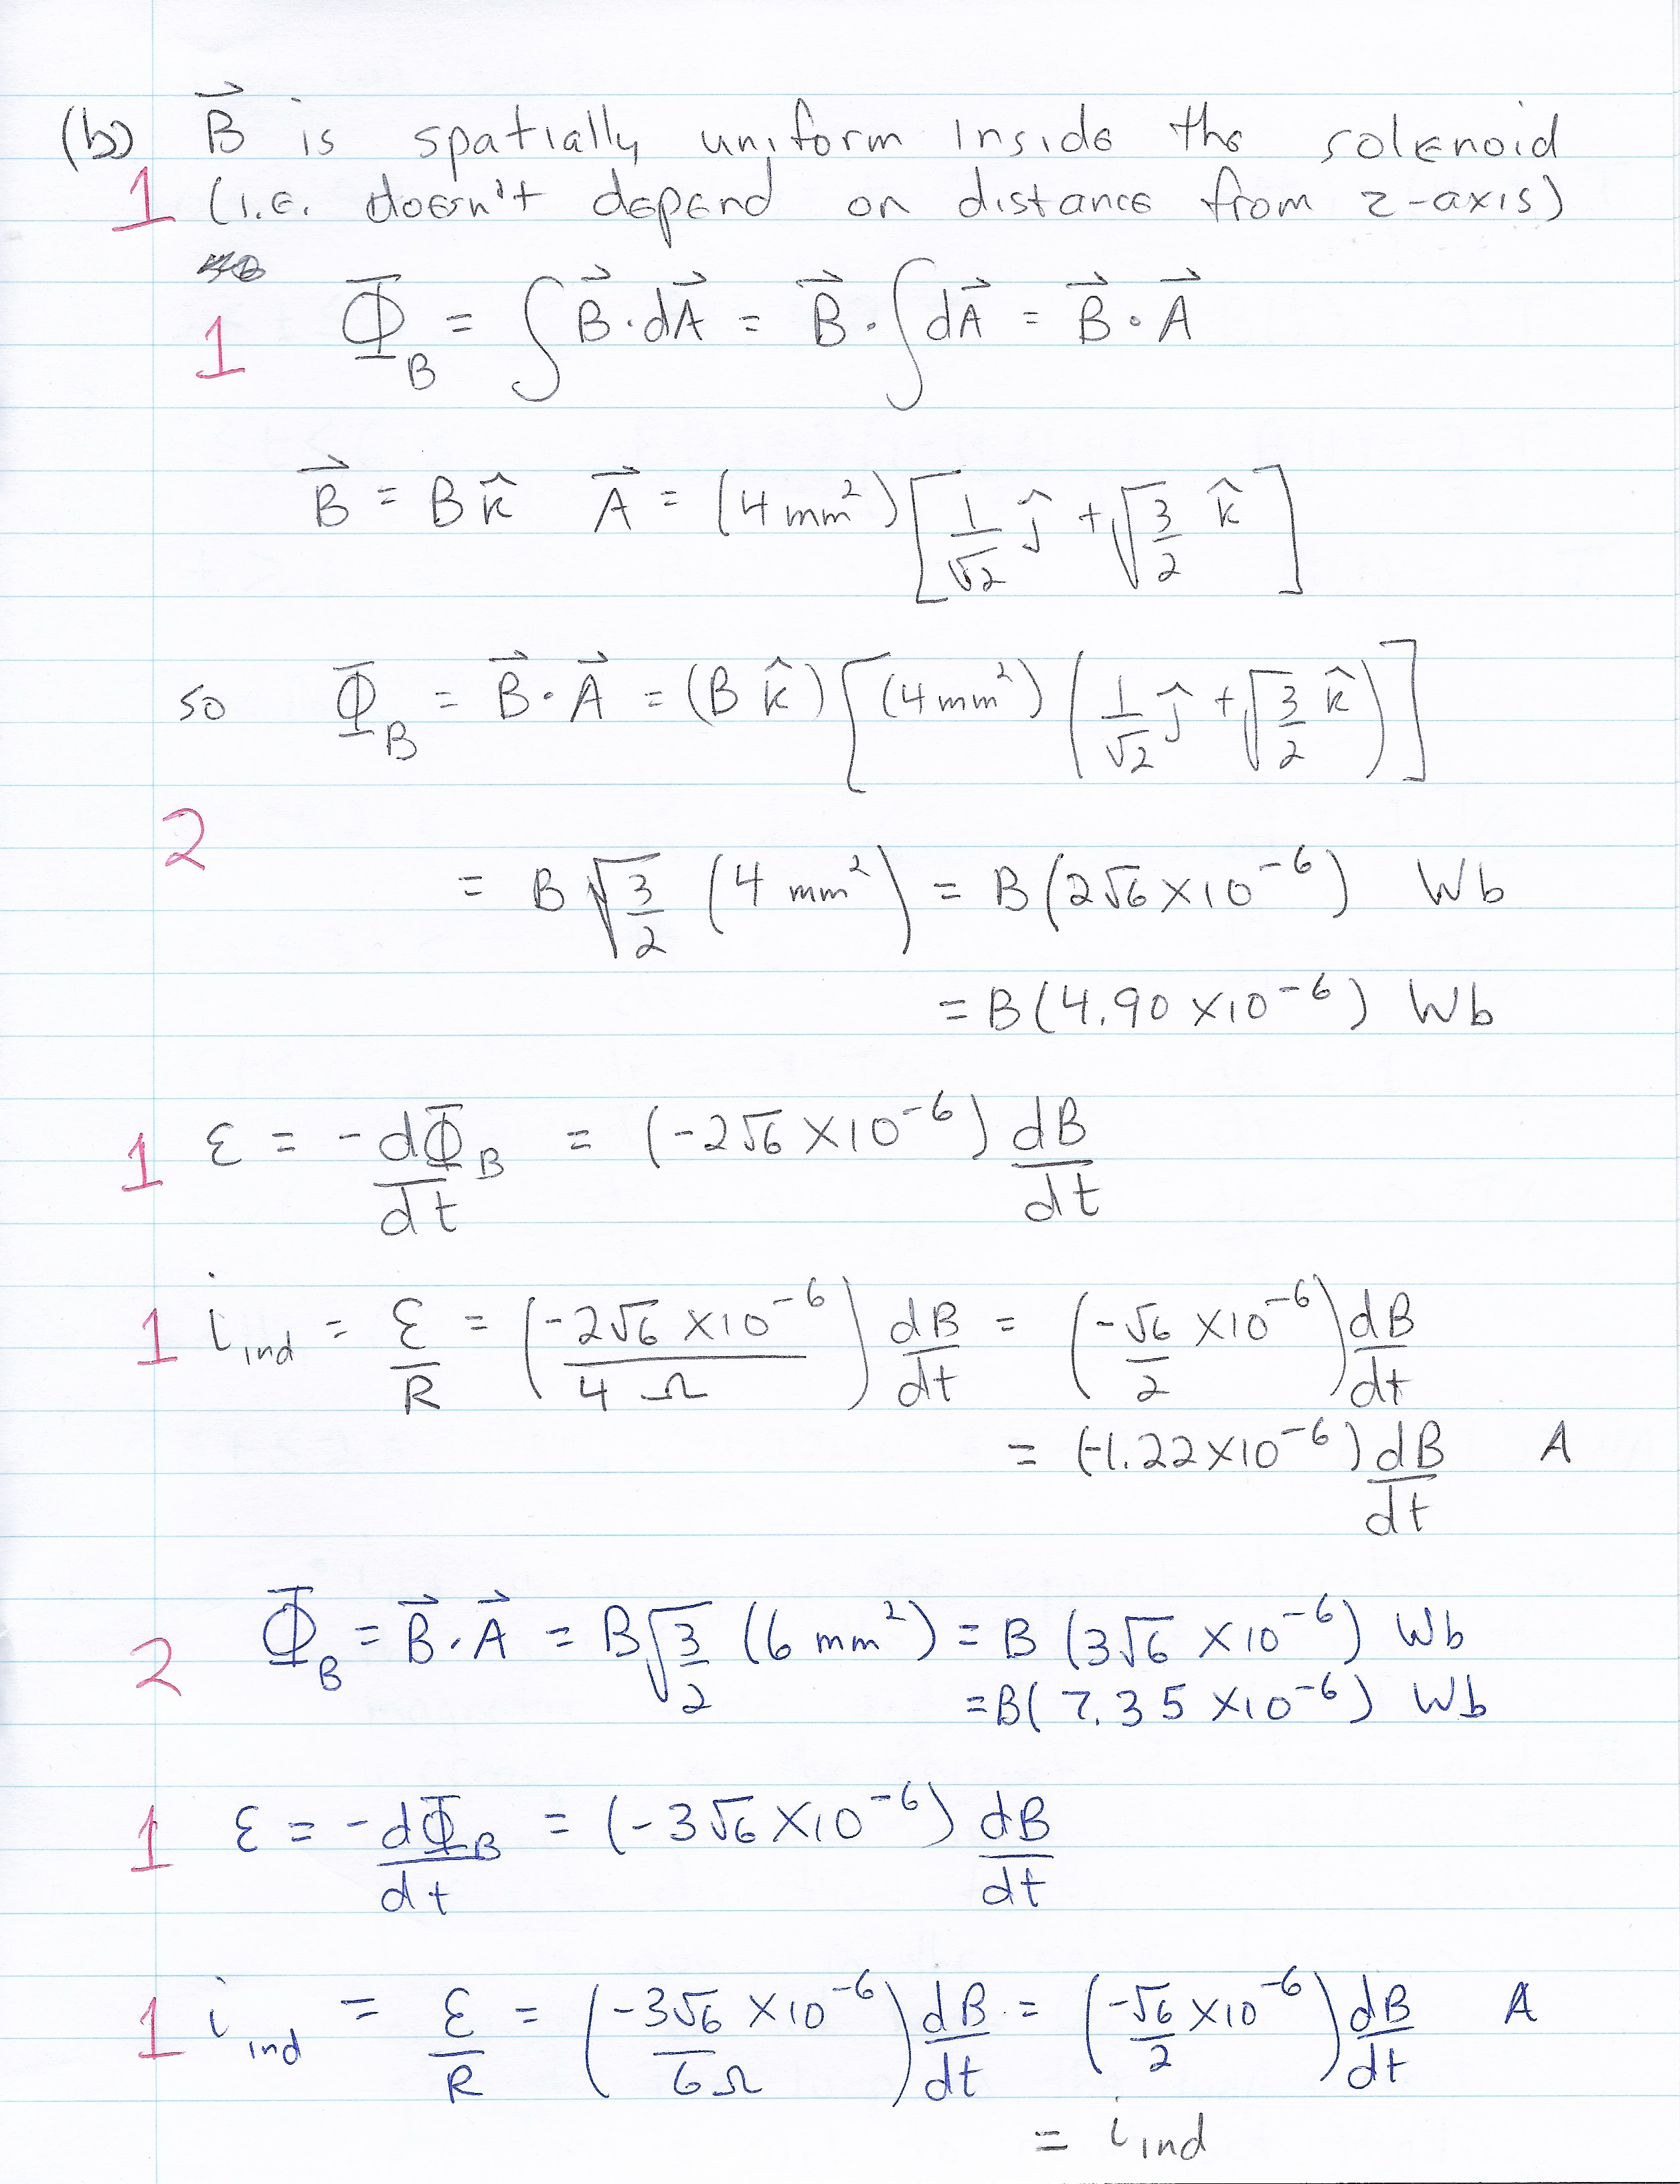 (b) B⃗ is spatially uniform inside the solenoid
1 (i.e. doesn't depend on distance from z-axis)
1 Φ_B = ∫ B⃗·dA⃗ = B⃗·∫dA⃗ = B⃗·A⃗
B⃗ = B k̂ A⃗ = (4 mm²)[1/√2 ĵ + √(3/2) k̂]
so Φ_B = B⃗·A⃗ = (B k̂)[(4 mm²)(1/√2 ĵ + √(3/2) k̂)]
2
= B √(3/2) (4 mm²) = B(2√6 × 10⁻⁶) Wb
= B(4.90 × 10⁻⁶) Wb
1 ε = -dΦ_B/dt = (-2√6 × 10⁻⁶) dB/dt
1 i_ind = ε/R = (-2√6 × 10⁻⁶ / 4 Ω) dB/dt = (-√6/2 × 10⁻⁶) dB/dt
= (-1.22 × 10⁻⁶) dB/dt A
2 Φ_B = B⃗·A⃗ = B √(3/2) (6 mm²) = B (3√6 × 10⁻⁶) Wb
= B(7.35 × 10⁻⁶) Wb
1 ε = -dΦ_B/dt = (-3√6 × 10⁻⁶) dB/dt
1 i_ind = ε/R = (-3√6 × 10⁻⁶ / 6 Ω) dB/dt = (-√6/2 × 10⁻⁶) dB/dt A
= i_ind